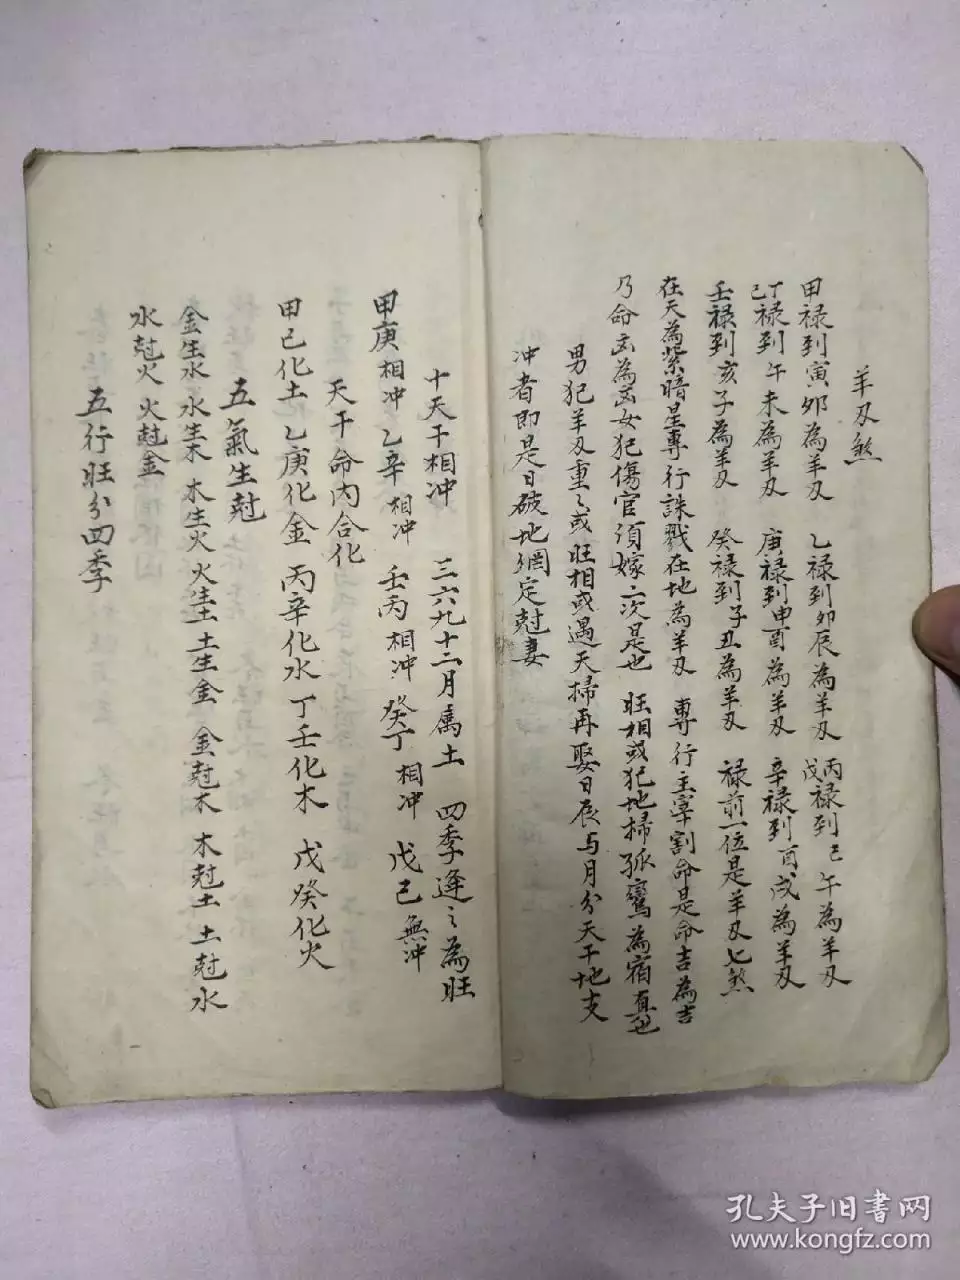 羊刃煞
甲禄到寅夘為羊刃 乙禄到夘辰為羊刃 丙戊禄到巳午為羊刃
丁己禄到午未為羊刃 庚禄到申酉為羊刃 辛禄到酉戌為羊刃
壬禄到亥子為羊刃 癸禄到子丑為羊刃 禄前一位是羊刃七煞
在天為紫暗星專行誅戮在地為羊刃 專行主宰割命是命吉為吉
乃命凶為凶女犯傷官須嫁二次是也 旺相或犯地掃孤鸞為宿直也
男犯羊刃重〻或旺相或遇天掃再娶日辰与月分天干地支
冲者即是日破地網定尅妻
十天干相冲 三六九十二月屬土 四季逢之為旺
甲庚相冲 乙辛相冲 壬丙相冲 癸丁相冲 戊己無冲
天干命内合化
甲己化土乙庚化金 丙辛化水丁壬化木 戊癸化火
五氣生尅
金生水水生木 木生火火生土土生金 金尅木 木尅土土尅水
水尅火火尅金
五行旺分四季
孔夫子旧书网
www.kongfz.com